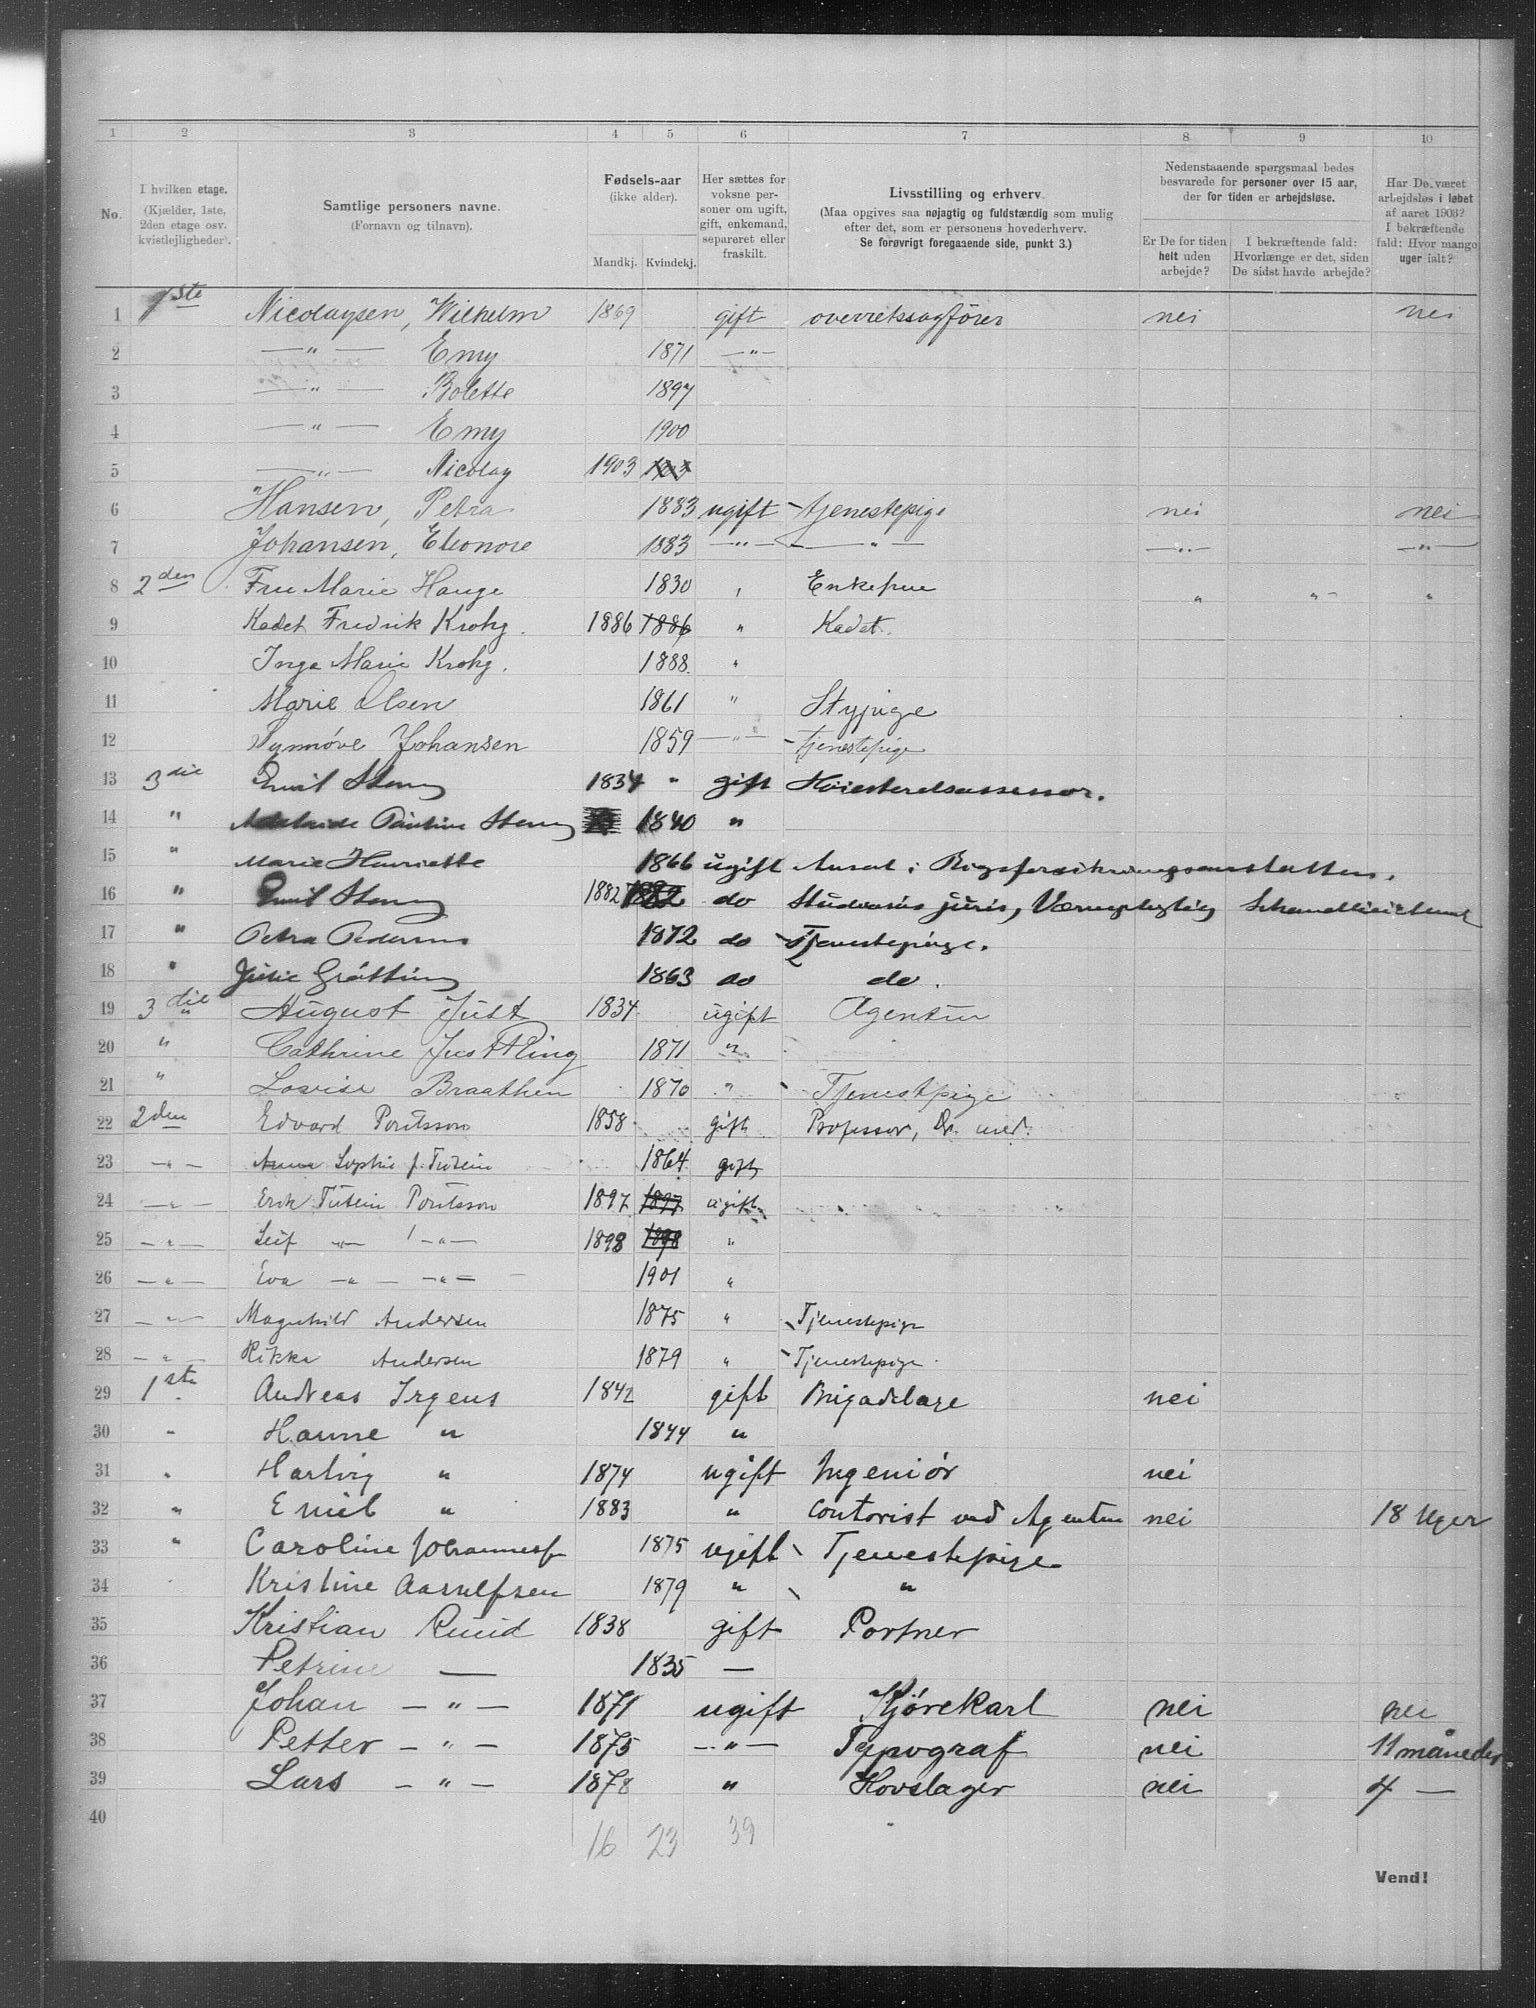 1 2 3 4 5 6 7 8 9 10
No.
I hvilken etage. (Kjælder, 1ste, 2den etage osv. kvistlejligheder).
Samtlige personers navne. (Fornavn og tilnavn).
Fødsels-aar (ikke alder).
Mandkj. Kvindekj.
Her sættes for voksne personer om ugift, gift, enkemand, separeret eller fraskilt.
Livsstilling og erhverv. (Maa opgives saa nøjagtig og fuldstændig som mulig efter det, som er personens hovederhverv. Se forøvrigt foregaaende side, punkt 3.)
Nedenstaaende spørgsmaal bedes besvarede for personer over 15 aar, der for tiden er arbejdsløse.
Er De for tiden helt uden arbejde?
I bekræftende fald: Hvorlænge er det, siden De sidst havde arbejde?
Har De været arbejdsløs i løbet af aaret 1903? I bekræftende fald: Hvor mange uger ialt?
1 1ste Nicolaysen, Wilhelm 1869 gift overretssagfører nei nei
2 —"— Emy 1871 —"—
3 —"— Bolette 1897
4 —"— Emy 1900
5 —"— Nicolay 1903 1903
6 Hansen, Petra 1883 ugift tjenestepige nei nei
7 Johansen, Eleonore 1883 —"— —"— —"— —"—
8 2den Fru Marie Hauge 1830 " Enkefrue " " "
9 Kadet Fredrik Krohg. 1886 1886 " Kadet.
10 Inga Marie Krohg. 1888 "
11 Marie Olsen 1861 " Stypige
12 Synnøve Johansen 1859 —"— tjenestepige
13 3die Emil Stang 1834 " gift Høiesteretsassessor.
14 " Adelaide Pauline Stang 1840 "
15 " Marie Henriette 1866 ugift Ansat i Rigsforsikringsanstalten.
16 " Emil Stang 1882 1882 do Studiosus juris, Værnepligtig
17 " Petra Pedersen 1872 do Tjenestepige.
18 " Julie Grøtting 1863 do do.
19 3die August Just 1834 ugift Agentur
20 " Cathrine Just Pling 1871 "
21 " Lovise Braathen 1870 " Tjenestpige
22 2den Edvard Poulsson 1858 gift Professor, Dr. med.
23 —"— Anna Sophie f. Tutein 1864 gift
24 —"— Erik Tutein Poulsson 1897 1897 ugift
25 —"— Leif —"— —"— 1898 1898 "
26 —"— Eva —"— —"— 1901 "
27 —"— Magnhild Andersen 1875 " Tjenestepige
28 —"— Rikka Andersen 1879 " Tjenestepige
29 1ste Andreas Irgens 1842 gift Brigadelæge nei
30 " Hanne " 1844 "
31 " Hartvig " 1874 ugift Ingeniør nei
32 " Emil " 1883 " Contorist ved Agentur nei 18 Uger
33 " Caroline Johannesen 1875 ugift Tjenestepige
34 Kristine Aarulfsen 1879 " "
35 Kristian Ruud 1838 gift Portner
36 Petrine — 1835 —
37 Johan —"— 1871 ugift Kjørekarl nei nei
38 Petter —"— 1875 —"— Typograf nei 11 måneder
39 Lars —"— 1878 " Hovslager nei 4 —
40
16 23 39
Vend!